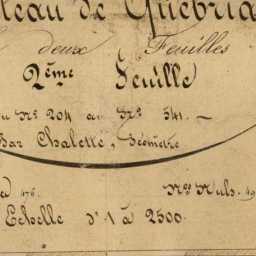 teau de Quebria
deux Feuilles
2ème Feuille
du Nº 204 au Nº 541.
Par Chalette, Géomètre
476.
Echelle d'1 à 2500.